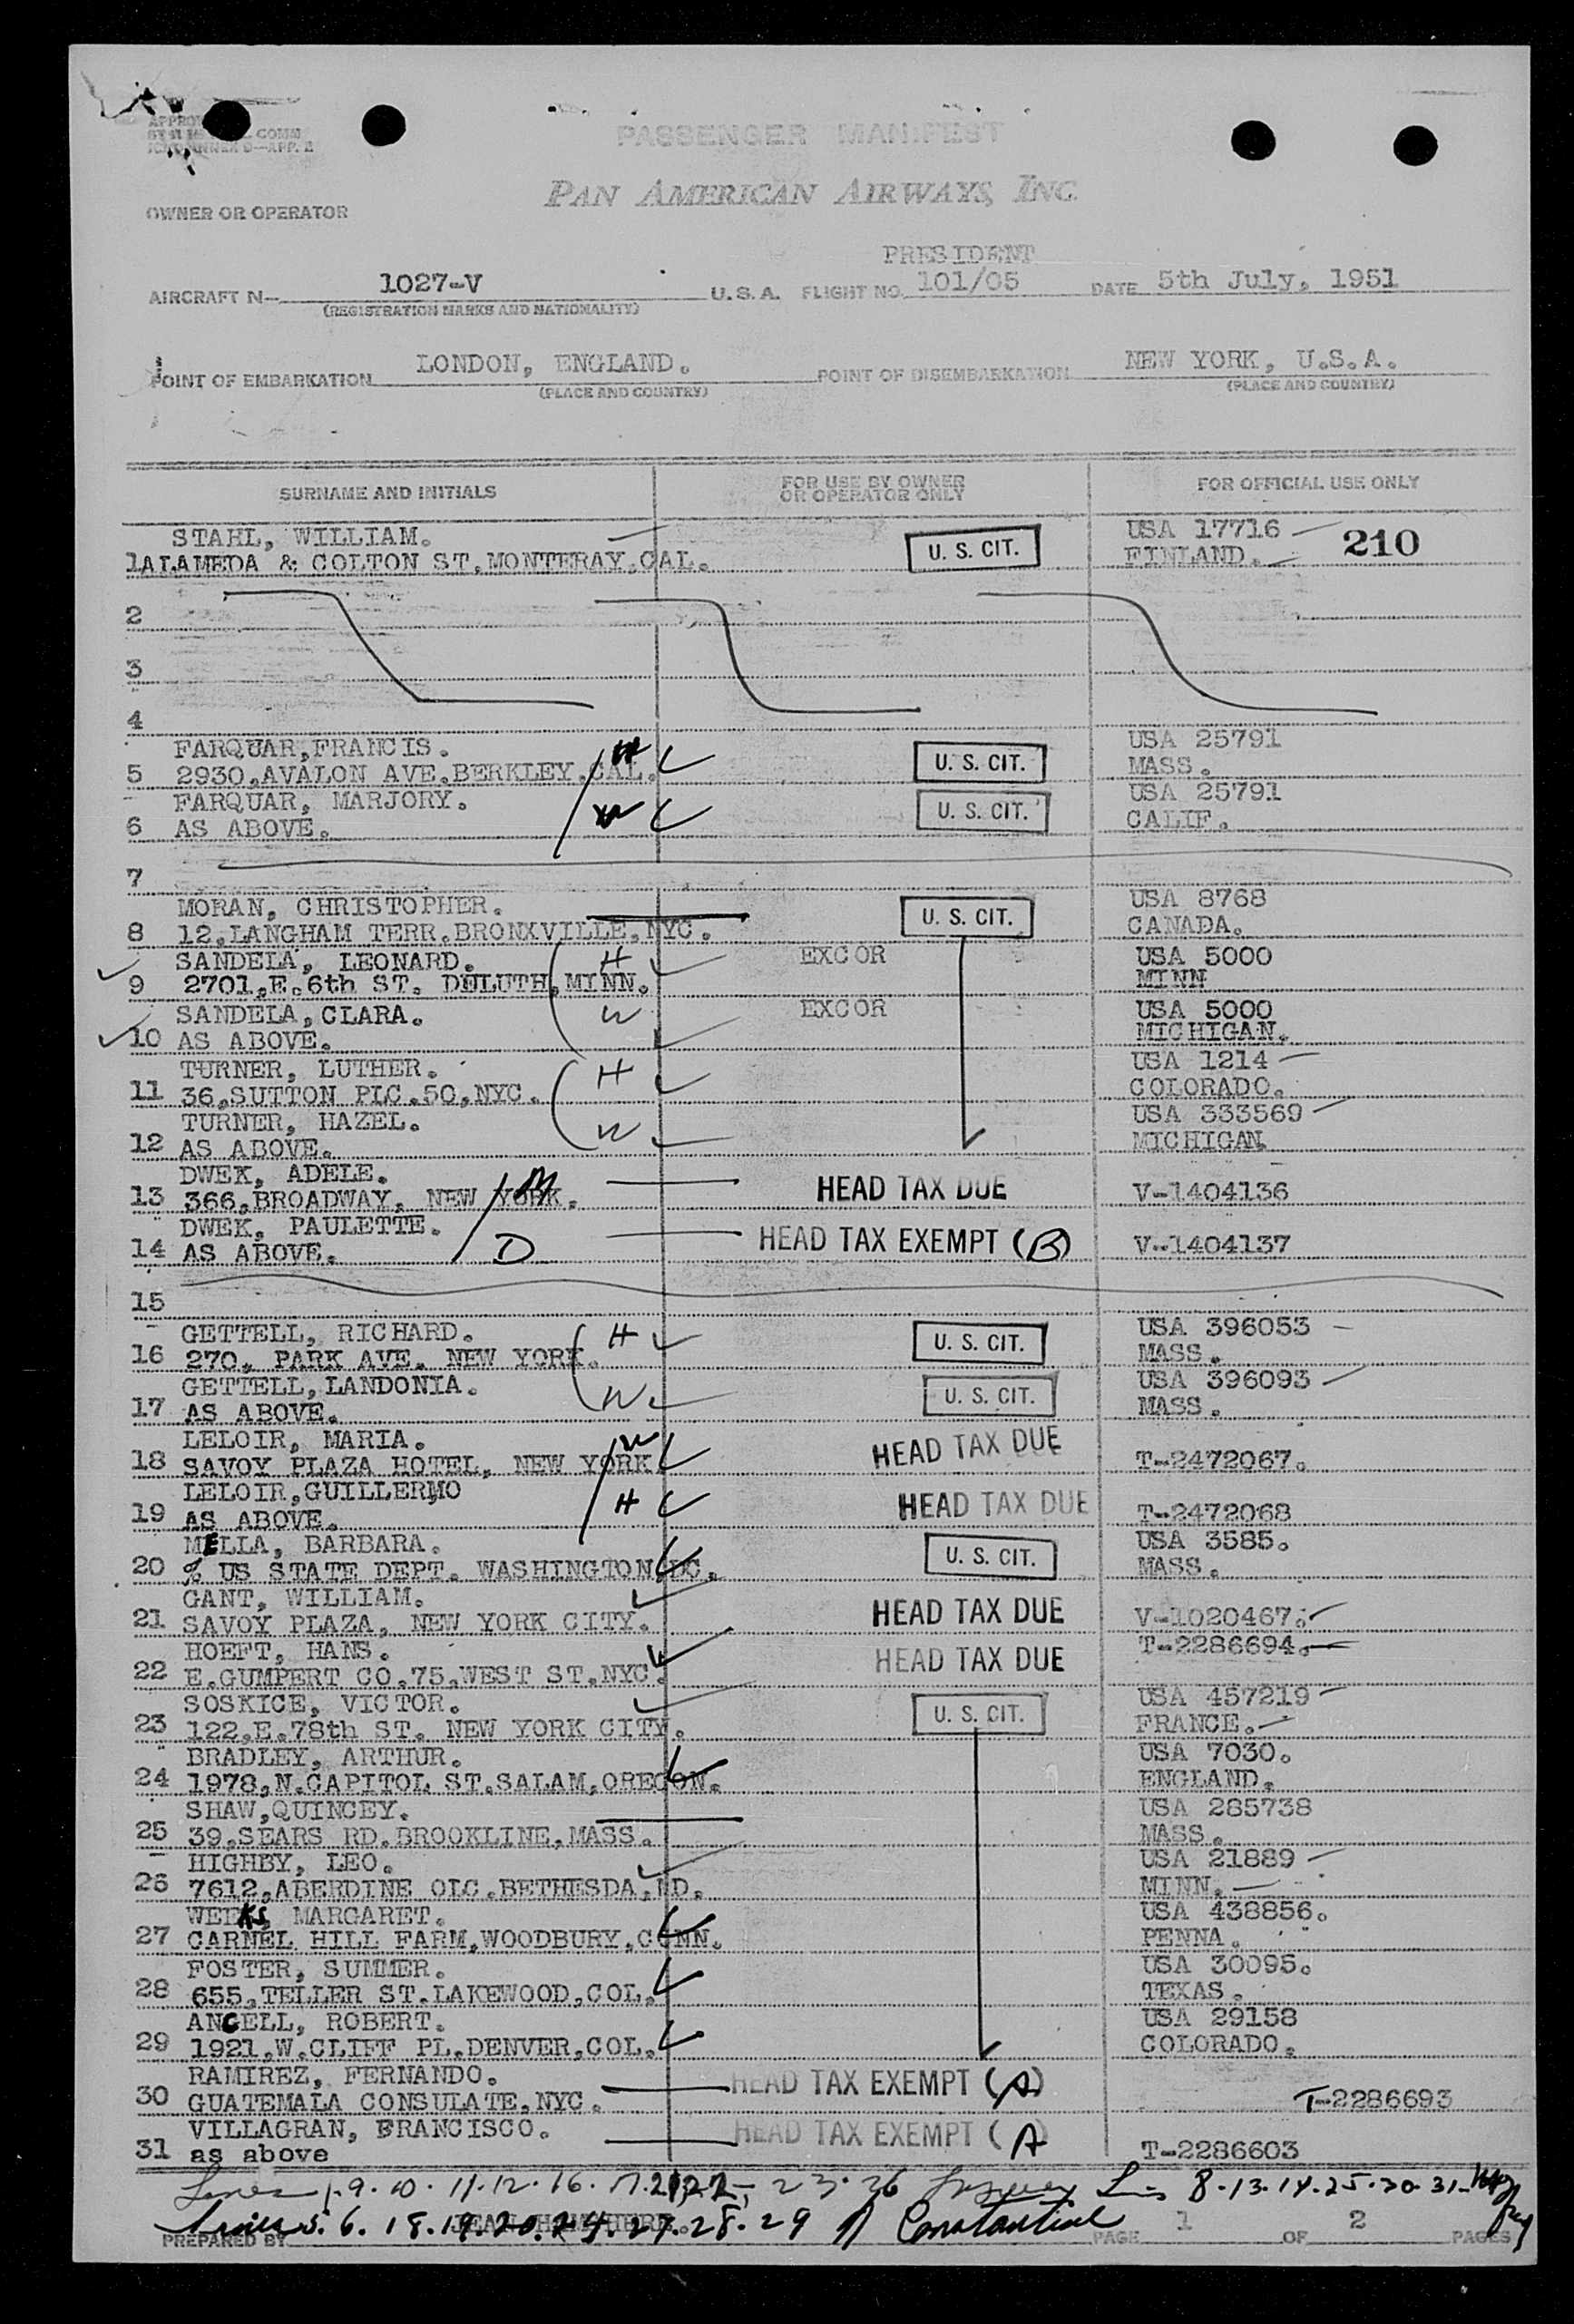 PASSENGER MANIFEST
PAN AMERICAN AIRWAYS, INC.
OWNER OR OPERATOR
PRESIDENT
AIRCRAFT N- 1027-V U.S.A. FLIGHT NO. 101/05 DATE 5th July, 1951
(REGISTRATION MARKS AND NATIONALITY)
POINT OF EMBARKATION LONDON, ENGLAND. POINT OF DISEMBARKATION NEW YORK, U.S.A.
(PLACE AND COUNTRY) (PLACE AND COUNTRY)
SURNAME AND INITIALS FOR USE BY OWNER OR OPERATOR ONLY FOR OFFICIAL USE ONLY
STAHL, WILLIAM. U. S. CIT. USA 17716 210
1 ALAMEDA & COLTON ST.MONTERAY.CAL. FINLAND.
2
3
4
FARQUAR,FRANCIS. H U. S. CIT. USA 25791
5 2930,AVALON AVE.BERKLEY.CAL. MASS.
FARQUAR, MARJORY. W U. S. CIT. USA 25791
6 AS ABOVE. CALIF.
7
MORAN, CHRISTOPHER. U. S. CIT. USA 8768
8 12,LANGHAM TERR.BRONXVILLE,NYC. CANADA.
SANDELA, LEONARD. H EXCOR USA 5000
9 2701,E.6th ST. DULUTH,MINN. MINN
SANDELA,CLARA. W EXCOR USA 5000
10 AS ABOVE. MICHIGAN.
TURNER, LUTHER. H USA 1214
11 36,SUTTON PLC.50,NYC. COLORADO.
TURNER, HAZEL. W USA 333569
12 AS ABOVE. MICHIGAN.
DWEK, ADELE. M HEAD TAX DUE
13 366,BROADWAY, NEW YORK. V-1404136
DWEK, PAULETTE. HEAD TAX EXEMPT (B)
14 AS ABOVE. D V-1404137
15
GETTELL, RICHARD. H U. S. CIT. USA 396053
16 270, PARK AVE. NEW YORK. MASS.
GETTELL,LANDONIA. W U. S. CIT. USA 396093
17 AS ABOVE. MASS.
LELOIR, MARIA. W HEAD TAX DUE
18 SAVOY PLAZA HOTEL, NEW YORK T-2472067.
LELOIR,GUILLERMO H HEAD TAX DUE
19 AS ABOVE. T-2472068
MELLA, BARBARA. U. S. CIT. USA 3585.
20 % US STATE DEPT. WASHINGTON,DC. MASS.
GANT, WILLIAM. HEAD TAX DUE
21 SAVOY PLAZA, NEW YORK CITY. V-1020467.
HOEFT, HANS. HEAD TAX DUE T-2286694.
22 E.GUMPERT CO.75,WEST ST,NYC.
SOSKICE, VICTOR. U. S. CIT. USA 457219
23 122,E.78th ST. NEW YORK CITY. FRANCE.
BRADLEY, ARTHUR. USA 7030.
24 1978,N.CAPITOL ST.SALAM,OREGON. ENGLAND.
SHAW,QUINCEY. USA 285738
25 39,SEARS RD.BROOKLINE,MASS. MASS.
HIGHBY, LEO. USA 21889
26 7612,ABERDINE OLC.BETHESDA,MD. MINN.
WEEKS, MARGARET. USA 438856.
27 CARNEL HILL FARM,WOODBURY,CONN. PENNA.
FOSTER, SUMMER. USA 30095.
28 655,TELLER ST.LAKEWOOD,COL. TEXAS.
ANGELL, ROBERT. USA 29158
29 1921,W.CLIFF PL.DENVER,COL. COLORADO.
RAMIREZ, FERNANDO. HEAD TAX EXEMPT (A)
30 GUATEMALA CONSULATE,NYC. T-2286693
VILLAGRAN, FRANCISCO. HEAD TAX EXEMPT (A)
31 as above T-2286603
Lines 1.9.10.11.12.16.17.21,22, 23.26 8.13.14.25.30.31
Lines 5.6.18.19.20.24.27.28.29 Constantine
PREPARED BY PAGE 1 OF 2 PAGES